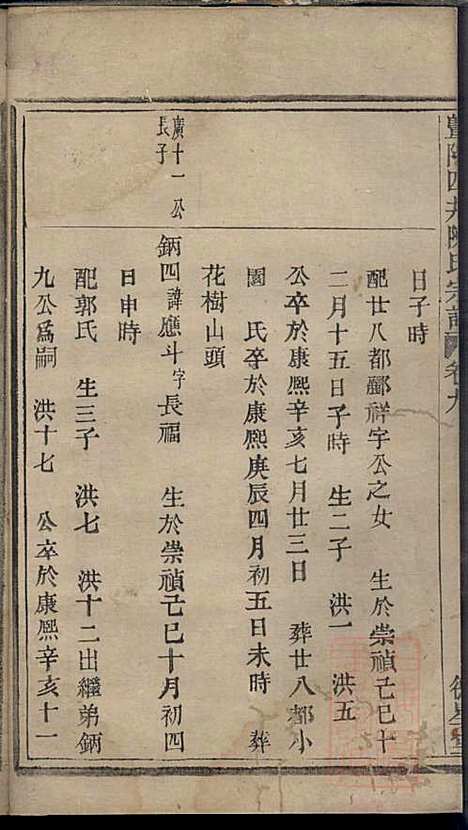 暨陽四井陳氏宗譜 卷九
日子時
配廿八都酈祥字公之女 生於崇禎己巳十
二月十五日子時 生二子 洪一 洪五
公卒於康熙辛亥七月廿三日 葬廿八都小
園 氏卒於康熙庚辰四月初五日未時 葬
花樹山頭
廣十一公
長子
鈵四諱應斗字長福 生於崇禎己巳十月初四
日申時
配郭氏 生三子 洪七 洪十二出繼弟鈵
九公為嗣 洪十七 公卒於康熙辛亥十一